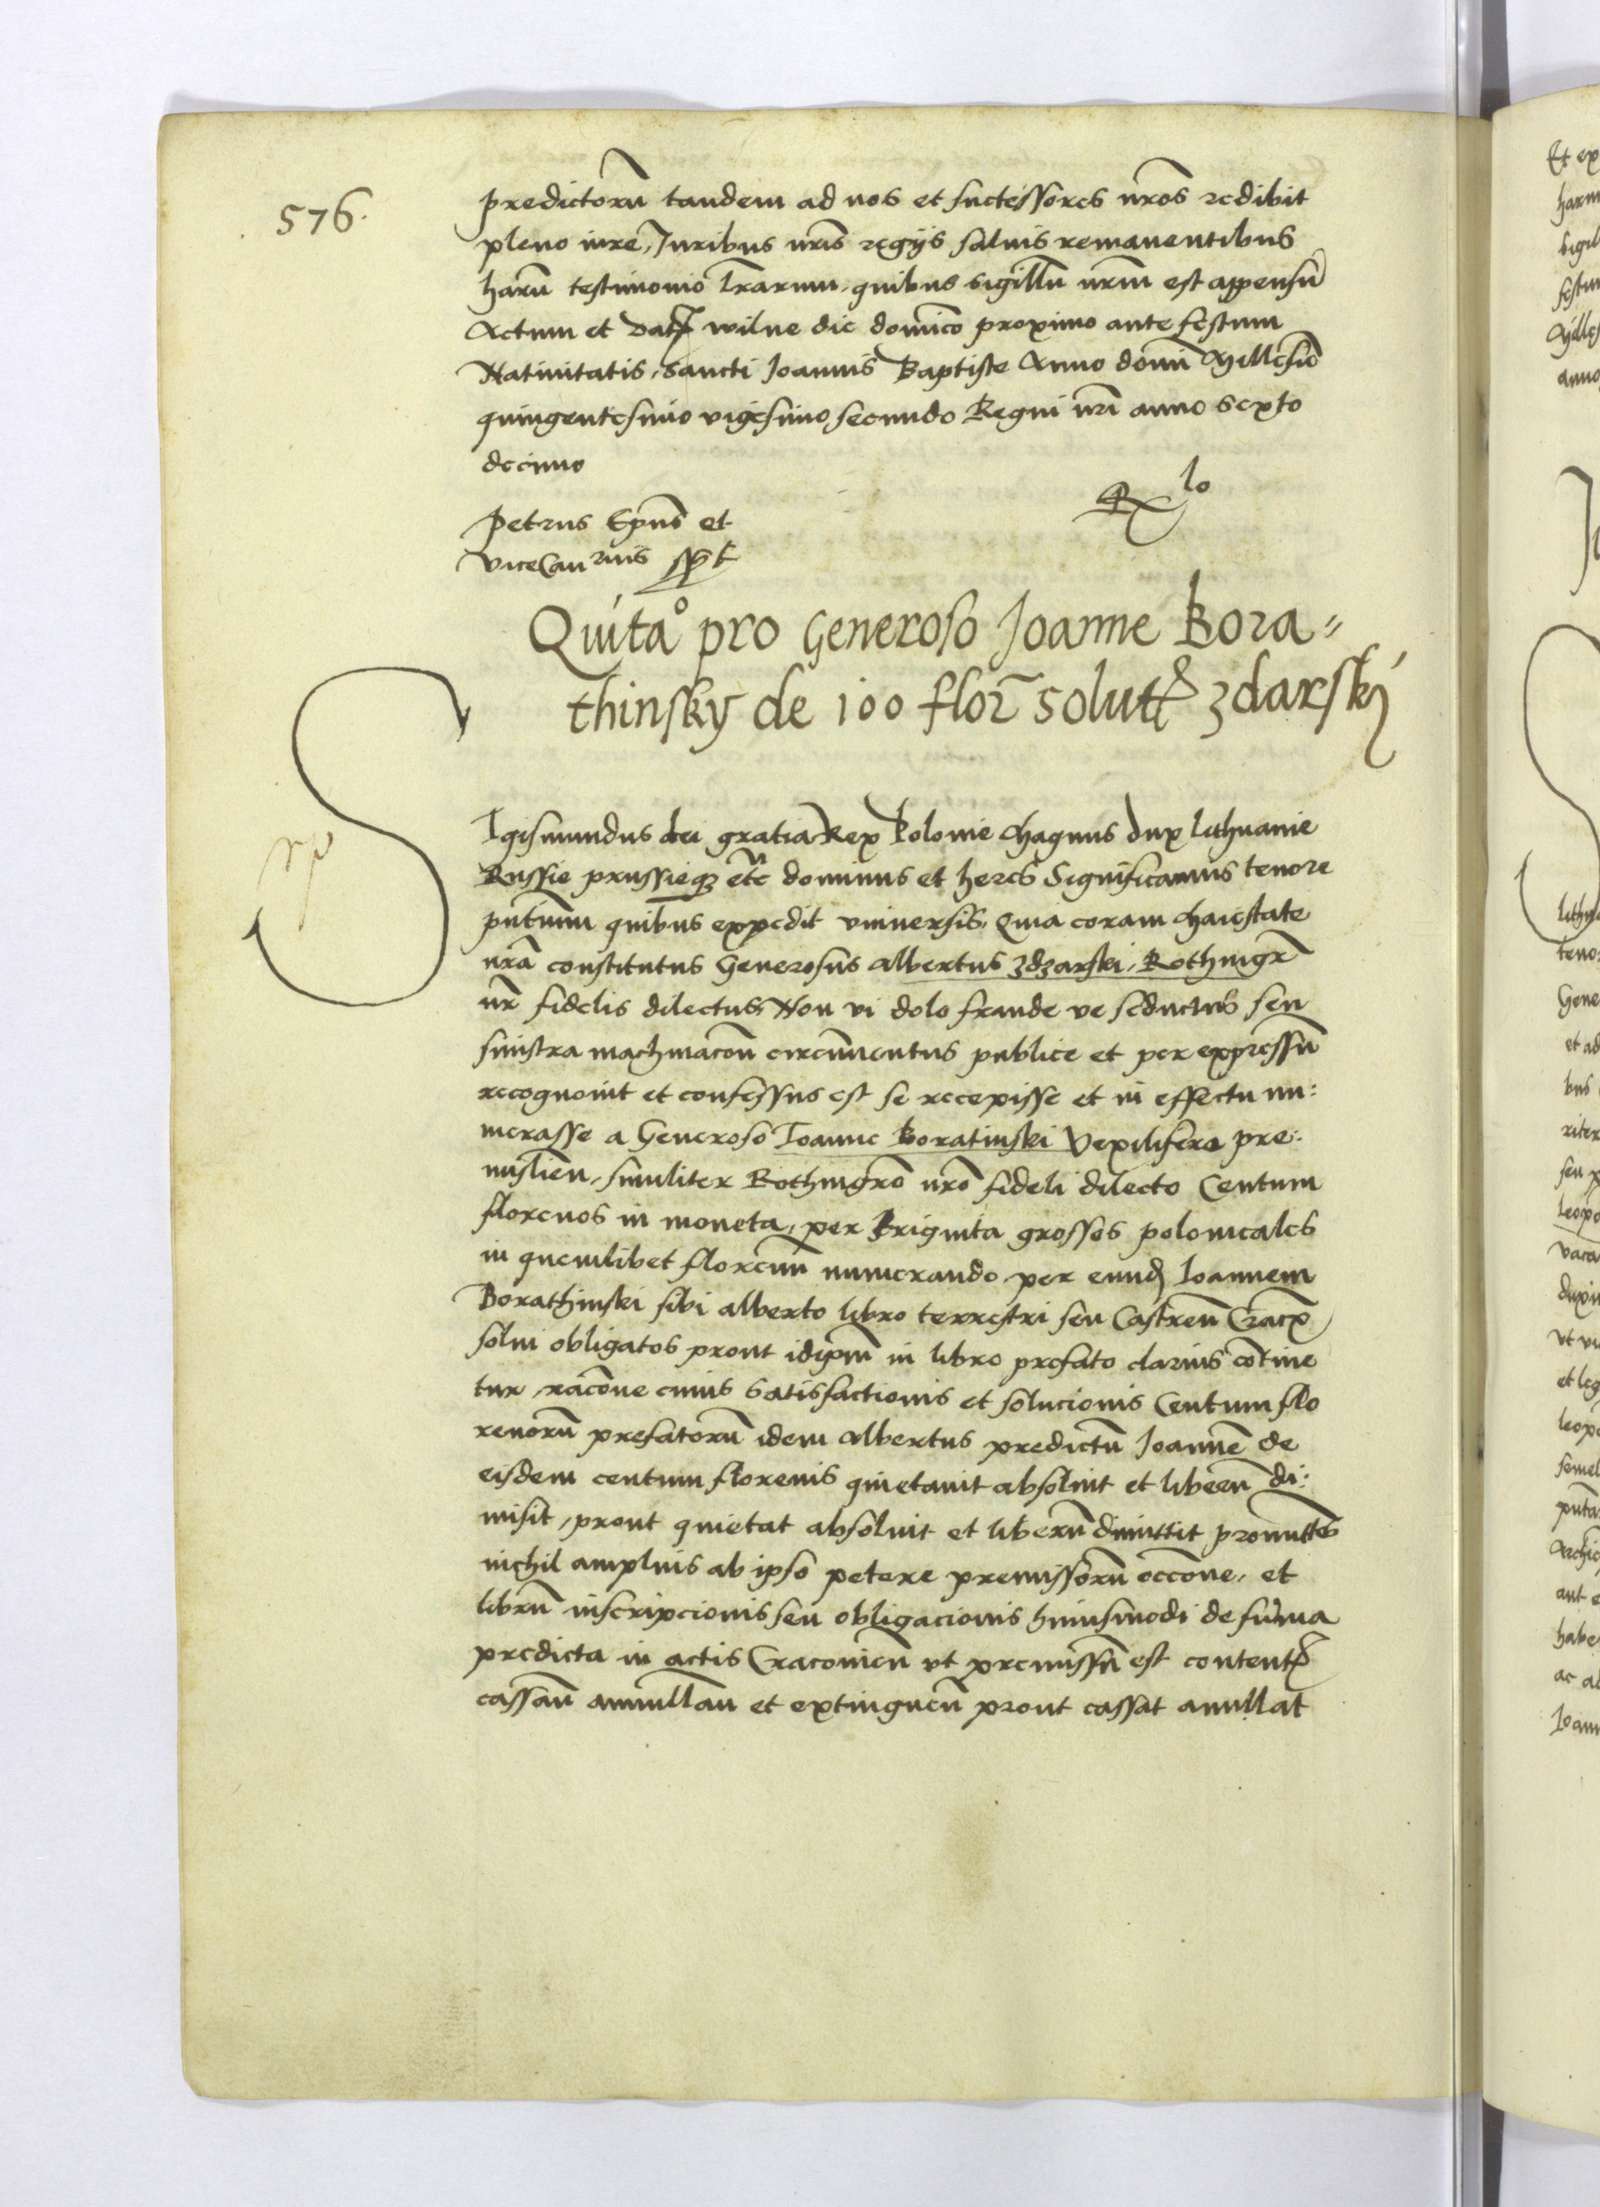 576.
predictorũ tandem ad nos et successores nr̃os redibit
pleno iure, Juribus nr̃is regijs saluis remanentibus
harũ testimonio lr̃arum, quibus sigillũ nr̃um est appensũ
Actum et Dat wilne die domĩco proximo ante festum
Natiuitatis, Sancti Joannis Baptiste Anno domĩ Millesiõ
quingentesimo vigesimo secundo Regni nr̃i anno sexto
decimo
Petrus Ep̃us et
ViceCan rius sst
Rx lo
Quita° pro Generoso Joanne Bora=
thinsky de 100 flor̃ solutt zdarskj
S
Igismundus dei gratia Rex Polonie Magnus dux Lithuanie
Russie prussieqz etc̃ dominus et heres Significamus tenore
pñtium quibus expedit vniuersis, Quia coram Maiestate
nr̃a constitutus Generosus Albertus Zdzarski, Rothmgr̃
nr̃ fidelis dilectus, Non vi dolo fraude ve seductus seu
sinistra machinacõn circũuentus publice et per expressũ
recognouit et confessus est se recepisse et in effectu nu:
merasse a Generoso Ioanne Boratinski Vexilifero pre:
mislieñ, similiter Rothmgrõ nr̃o fideli dilecto Centum
florenos in moneta, per triginta grossos polonicales
in quemlibet florenũ numerando per eund Ioannem
Borathinski sibi alberto libro terrestri seu Castreñ Crac
solui obligatos prout idip̃m in libro prefato clarius cõtine
tur, racõne cuius satisfactionis et solucionis Centum flo
renorũ prefatorũ idem Albertus predictũ Joannẽ de
eisdem centum florenis quietauit absoluit et liberũ di:
misit, prout quietat absoluit et liberũ dimittit promittẽs
nichil amplius ab ipso petere premissorũ occõne, et
librũ inscripcionis seu obligacionis huiusmodi de sum̃a
predicta in actis Cracouieñ vt premissũ est content
cassañ annullañ et extingueñ prout cassat anullat